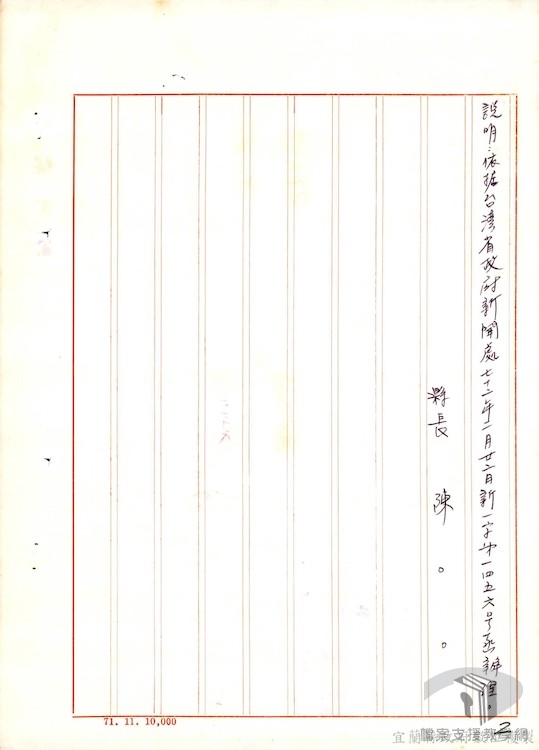 說明：依據台湾省政府新聞處七十二年二月廿二日新一字第一四五六号函辦理。
縣長 陳。。
71. 11. 10,000
2
檔案支援教學網